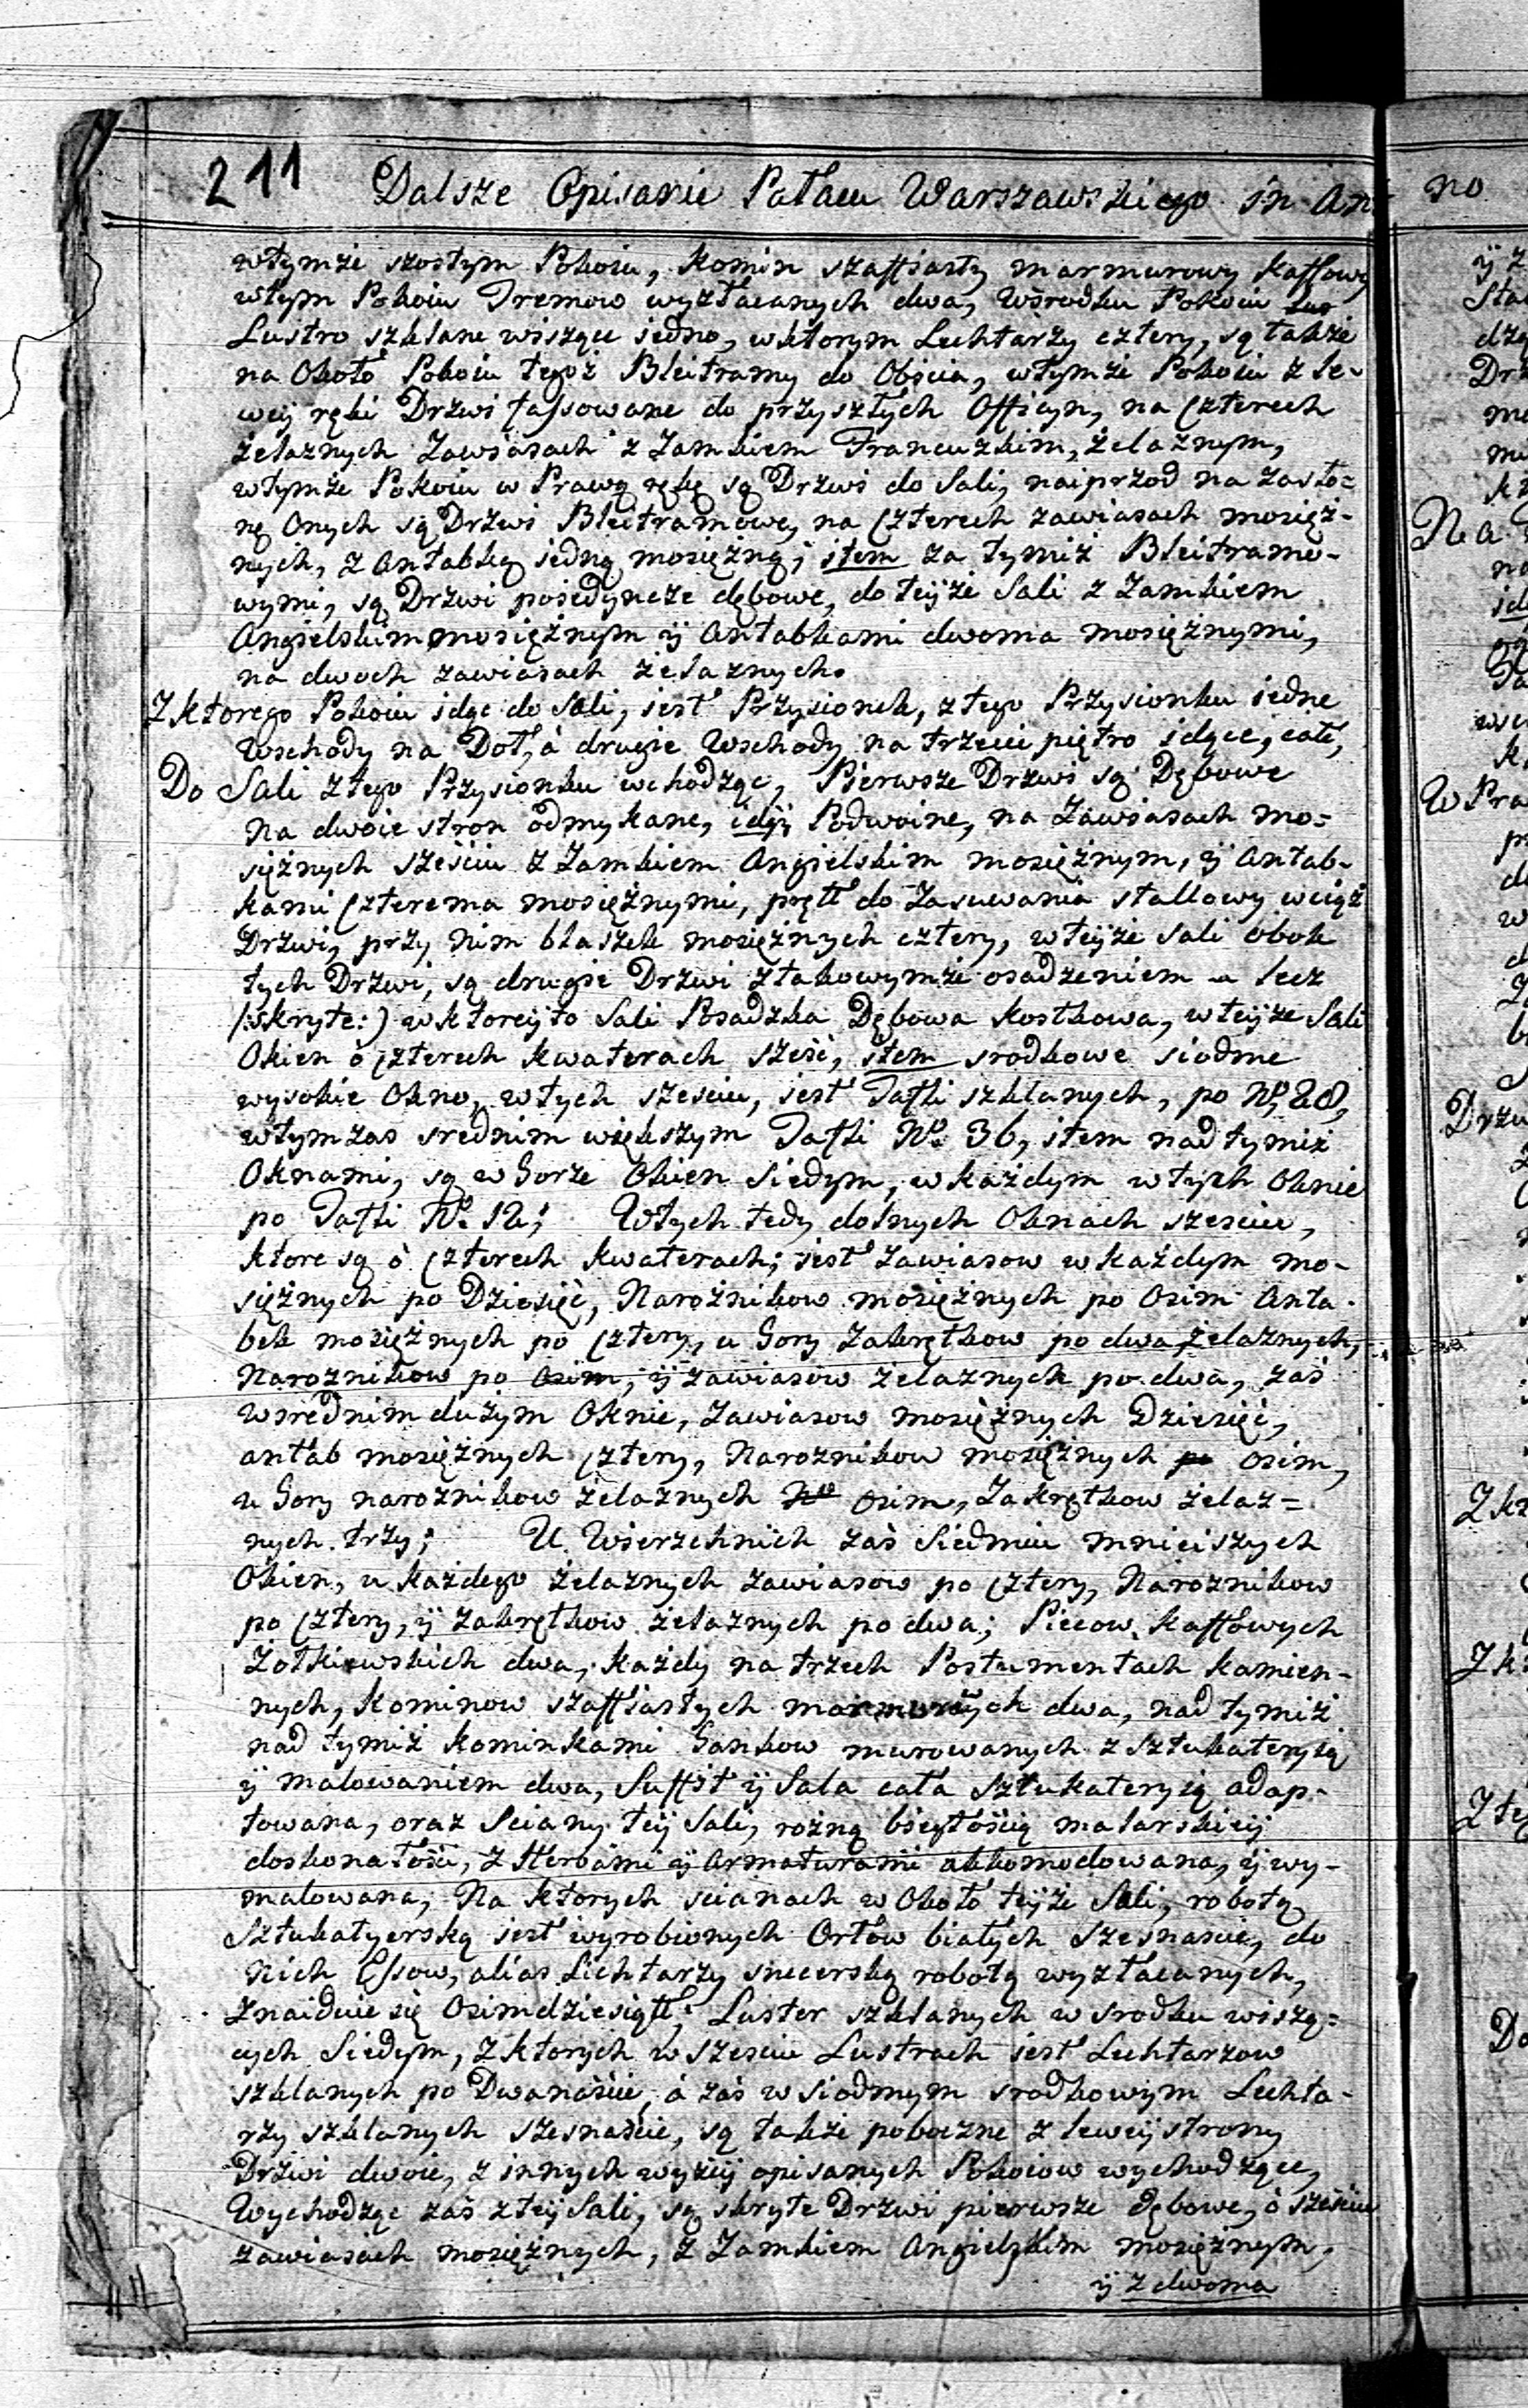 211 Dalsze Opisanie Pałacu Warszawskiego in An no
wtymże szostym Pokoiu, Komin szaffiasty marmurowy Kafflowy
wtym Pokoiu Tremow wyzłacanych dwa, Wśrodku Pokoiu
Lustro szklane wiszące iedno, wktorym Lichtarzy cztery, są także
na Około Pokoiu tegoż Bleitramy do Obicia, wtymże Pokoiu z le-
weÿ ręki Drzwi fassowane do przyszłych Officyn, na Czterech
żelaznych Zawiasach z Zamkiem Francuzkim, żelaznym,
wtymże Pokoiu w Prawą rękę są Drzwi do Sali, naiprzod na zasło=
nę Onych są Drzwi Bleitramowe, na Czterech zawiasach mosięż-
nych, z Antabką iedną mosiężną; item za tymiż Bleitramo-
wymi, są Drzwi poiedyncze dębowe, do teÿże Sali z Zamkiem
Angielskim mosiężnym ÿ Antabkami dwoma mosiężnymi,
na dwoch zawiasach żelaznych.
Z ktorego Pokoiu idąc do Sali, iest Przysionek, z tego Przysionku iedne
Wschody na Doł, á drugie Wschody na trzecie piętro idące, całe,
Do Sali z tego Przysionku wchodząc, Pierwsze Drzwi są Dębowe
na dwoie stron odmykane, idÿ Podwoine, na Zawiasach mo=
siężnych sześciu z Zamkiem Angielskim mosiężnym, ÿ Antab-
kami Czterema mosiężnymi, prętt do Zasuwania stallowy wciąż
Drzwi, przy nim blaszek mosiężnych cztery, wteÿże Sali obok
tych Drzwi, są drugie Drzwi ztakowymże osadzeniem lecz
/:skryte:) w ktoreÿto Sali Posadzka Dębowa Kostkowa, wteÿże Sali
Okien ò Czterech Kwaterach sześć, item srodkowe siodme
wysokie Okno, wtych szesciu, iest Tafli szklanych, po Nº 28,
wtym zas srednim większym Tafli Nº 36, item nad tymiż
Oknami, są w Gorze Okien Siedym, w każdym wtych Oknie
po Tafli Nº 12; Wtych tedy dolnych Oknach szesciu,
ktore są ò Czterech Kwaterach; iest zawiasow w każdym mo-
siężnych po Dziesięć, Narożnikow mosiężnych po Osim Anta-
bek mosiężnych po Cztery, u Gory Zakrętkow po dwa żelaznych,
Naroznikow po Osim, ÿ zawiasow żelaznych po dwa, zaś
wśrednim dużym Oknie, zawiasow mosiężnych Dziesięć,
antab mosiężnych Cztery, Naroznikow mosiężnych po Osim,
u Gory naroznikow żelaznych Nº Osim, Zakrętkow żelaz=
nych trzy; U Wierzchnich zaś Siedmiu mnieiszych
Okien, u każdego żelaznych zawiasow po Cztery, Naroznikow
po Cztery, ÿ zakrętkow żelaznych po dwa; Piecow Kafflowych
Żołkiewskich dwa, każdy na trzech Postumentach Kamien-
nych, Kominow szaffiastych marmurowych dwa, nad tymiż
nad tymiż Kominkami Gankow murowanych z Sztukateryią
ÿ malowaniem dwa, Suffit ÿ Sala cała Sztukateryią adap-
towana, oraz Sciany teÿ Sali, rożną biegłością malarskieÿ
doskonałości, z Herbami ÿ Armaturami akkomodowana, ÿ wy-
malowana, Na ktorych scianach w Około teÿże Sali, robotą
Sztukatyerską iest wyrobionych Orłów białych Szesnascie, do
nich Essow, alias Lichtarzy snicerską robotą wyzłacanych,
znaiduie się Osimdziesiątt; Luster szklanych w srodku wiszą=
cych Siedym, z ktorych w szesciu Lustrach iest Lichtarzow
szklanych po Dwanaście, á zaś w siodmym srodkowym Lichta-
rzy szklanych szesnaście, są także poboczne z leweÿ strony
Drzwi dwoie, z innych wyżeÿ opisanych Pokoiow wychodzące,
Wychodząc zaś z teÿ Sali, są skryte Drzwi pierwsze dębowe, ò sześciu
zawiasach mosiężnych, z Zamkiem Angielskim mosiężnym,
ÿ z dwoma